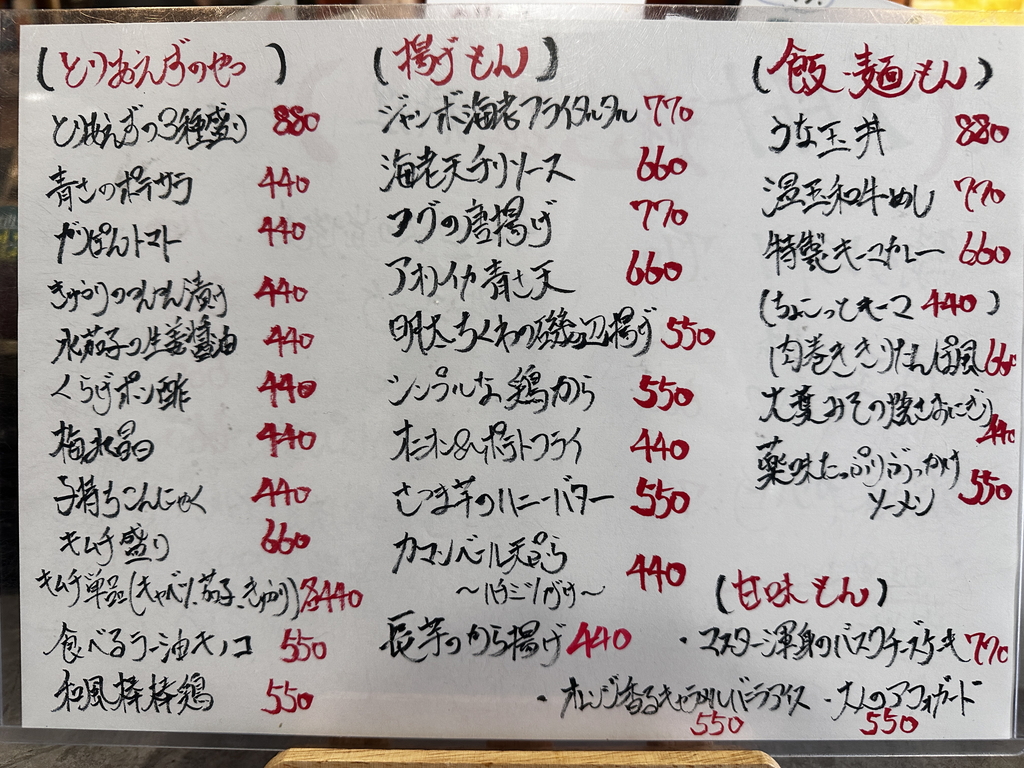 (とりあえずのやつ)
とりあえずの3種盛り 880
青さのポテサラ 440
ガリぽんトマト 440
きゅうりのてんてん漬け 440
水茄子の生姜醤油 440
くらげポン酢 440
梅水晶 440
子持ちこんにゃく 440
キムチ盛り 660
キムチ単品(キャベツ、茄子、きゅうり)各440
食べるラー油キノコ 550
和風棒棒鶏 550
(揚げもん)
ジャンボ海老フライタルタル 770
海老天チリソース 660
フグの唐揚げ 770
アオリイカ青さ天 660
明太ちくわの磯辺揚げ 550
シンプルな鶏から 550
オニオン&ポテトフライ 440
さつま芋のハニーバター 550
カマンベール天ぷら 440
〜ハチミツがけ〜
長芋のから揚げ 440
(飯・麺もん)
うな玉丼 880
温玉和牛めし 770
特製キーマカレー 660
(ちょこっとキーマ 440)
肉巻ききりたんぽ風 660
大葉みその焼きおにぎり
440
薬味たっぷりぶっかけ
ソーメン 550
(甘味もん)
・マスター渾身のバスクチーズケーキ 770
・オレンジ香るキャラメルバニラアイス
550
・大人のアフォガード
550